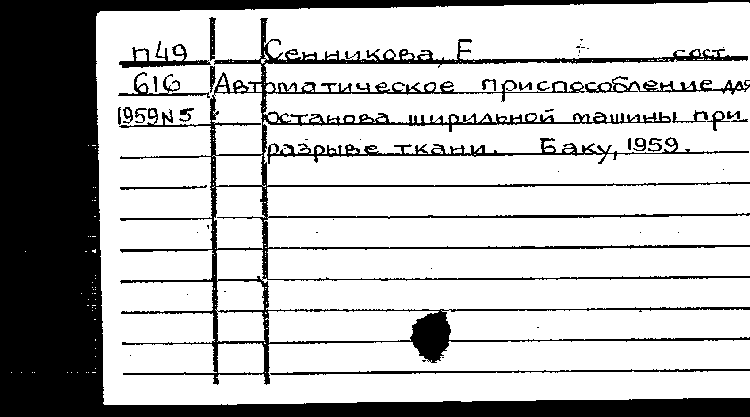 п49 Сенникова, Е сост.
616 Автоматическое приспособление для
1959N5 останова ширильной машины при
разрыве ткани. Баку, 1959.